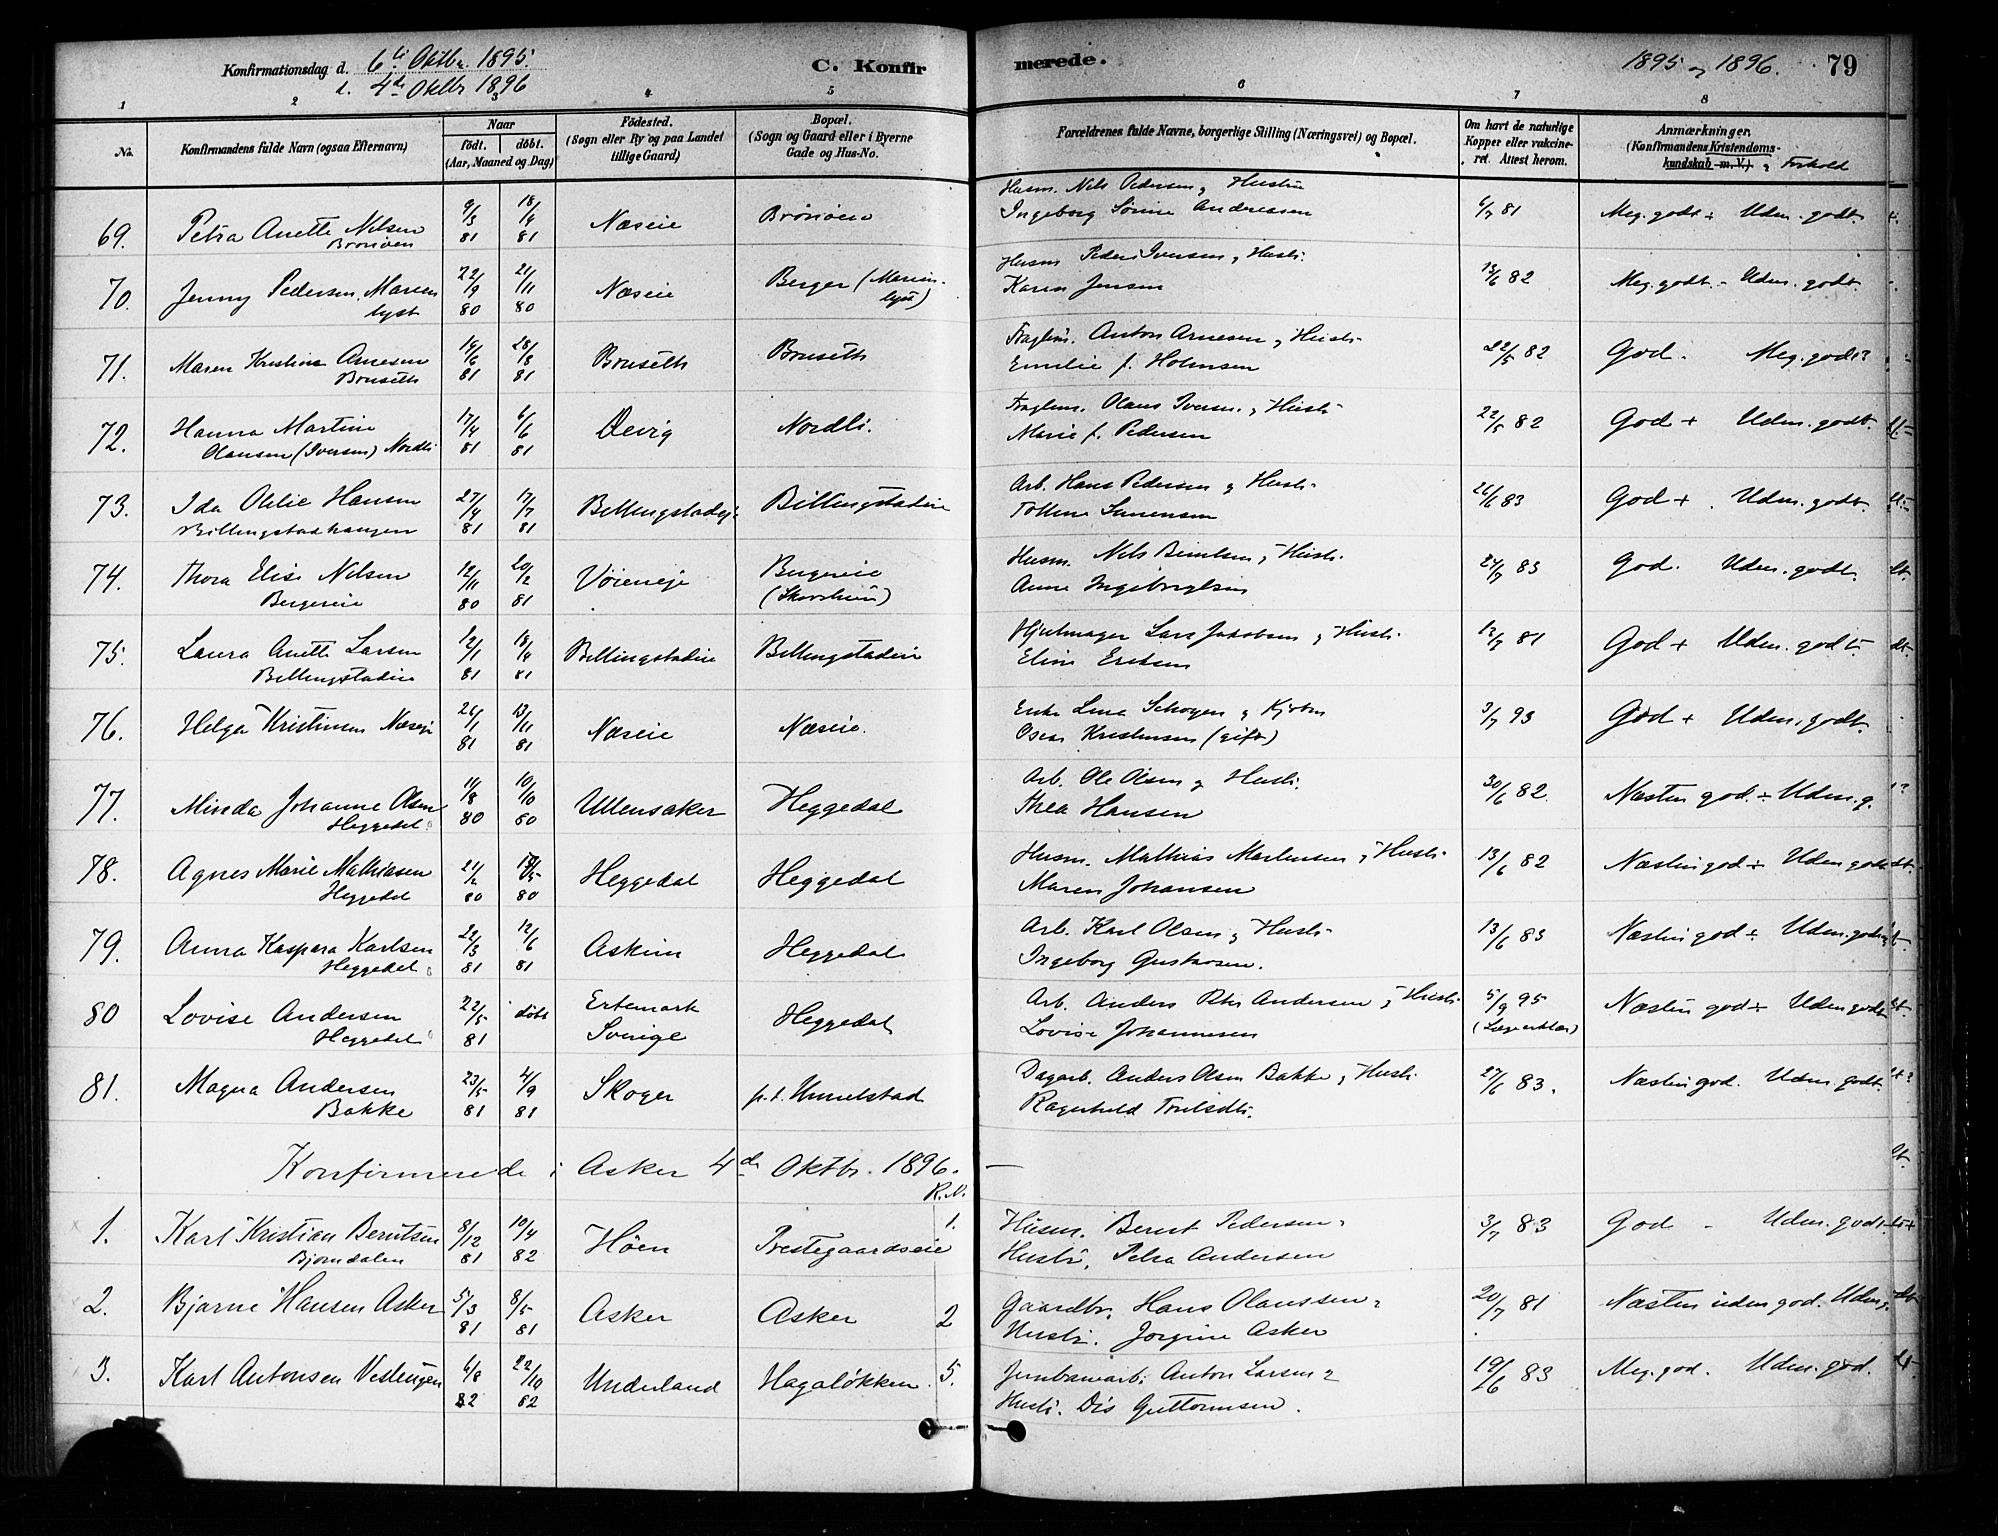 Konfirmationsdag d. 6te Oktbr. 1895.
d. 4de Oktbr 1896
C. Konfirmerede.
1895 og 1896. 79
1 2 3 4 5 6 7 8
No. Konfirmandens fulde Navn (ogsaa Efternavn) Naar födt. döbt. (Aar, Maaned og Dag) Födested. (Sogn eller By og paa Landet tillige Gaard) Bopæl. (Sogn og Gaard eller i Byerne Gade og Hus-No. Forældrenes fulde Navne, borgerlige Stilling (Næringsvei) og Bopæl. Om havt de naturlige Kopper eller vakcineret. Attest herom. Anmærkninger. (Konfirmandens Kristendomskundskab m. V.) og Forhold
69. Petra Anette Nilsen 9/3 81 18/4 81 Næseie Brönöen Husm. Nils Pedersen og Hustru 6/7 81 Meg. godt + Udm. godt.
Brönöen Ingeborg Sörine Andreassen
70. Jenny Pedersen, Marienlyst 22/9 80 21/11 80 Næseie Berger (Marienlyst) Husm Peder Iversen og Hustr. 13/6 82 Meg. godt. - Udm. godt.
Karen Jensen
71. Maren Kristine Arnesen 14/6 81 28/8 81 Bruseth Bruseth Anton Arnesen og Hustr. 22/5 82 God. Meg. godt
Bruseth Emilie f. Holmsen
72. Hanna Martine 17/4 81 6/6 81 Nordli. Olaus Iversen og Hustr. 22/5 82 God + Udm. godt.
Olausen (Iversen) Nordli Marie f. Pedersen
73. Ida Otilie Hansen 27/4 81 17/7 81 Billingstadeje Billingstadeie Arb. Hans Pedersen og Hustr. 26/6 83 God + Udm. godt.
Billingstadhaugen
74. Thora Elise Nilsen 12/11 80 20/2 81 Vöieneje Bergereie Husm. Nils og Hustr. 24/7 83 God. Udm. godt.
Bergereie Anne
75. Laura Anette Larsen 12/1 81 18/4 81 Billingstadeie Billingstadeie Hjulmager Lars Jakobsen og Hustr. 13/7 81 God + Udm. godt.
Billingstadeie Eline
76. Helga Kristensen Næseje 26/1 81 13/11 81 Næseie Næseie. Enke Lina og 3/7 93 God + Udm. godt.
Oscar Kristensen (gift)
77. Minda Johanne Olsen 11/8 80 10/10 80 Ullensaker Heggedal Arb. Ole Olsen og Hustr. 30/6 82. Næsten god. ÷ Udm. g.
Heggedal Thea Hansen
78. Agnes Marie Mathiasen 21/2 80 80 Heggedal Heggedal Husm. Mathias Martinsen og Hustr. 13/6 82 Næsten god ÷ Udm. godt
Heggedal Maren Johansen
79. Anna Kaspara Karlsen 22/3 81 12/6 81 Askim Heggedal Arb. Karl Olsen og Hustr. 13/6 83 Næsten god ÷ Udm. godt
Heggedal Ingeborg Gustavsen.
80 Lovise Andersen 22/5 81 döbt Ertemark Sverige Heggedal Arb. Anders Peter Andersen og Hustr. 5/9 95 Næsten god ÷ Udm godt
Heggedal Lovise Johannesen
81. Magna Andersen 23/5 81 4/9 81 Skoger p.t. Hunelstad Dagarb. Anders Olsen Bakke og Hustr. 27/6 83. Næsten god. Udm. godt.
Bakke Ragnhild
Konfirmerede i Asker 4de Oktbr. 1896. —
R. N.
1. Karl Kristian Berntsen 8/12 81 10/4 82 Höen Prestegaardseie 1. Husm. Bernt Pedersen og 3/7 83 God - Udm. godt
Bjorndalen Hustr. Petra Andersen
2. Bjarne Hansen Asker 5/3 81 8/5 81 Asker Asker 2 Gaardbr. Hans Olaussen og 20/7 81 Næsten uden god. Udm g.
Hustr. Jorgine Asker
3. Karl Antonsen 6/8 82 22/10 82 Underland Hagalökken 5. Jernbanearb. Anton Larsen og 19/6 83 Meg. god. Udm. god.
Hustr. Dis Guttormsen.